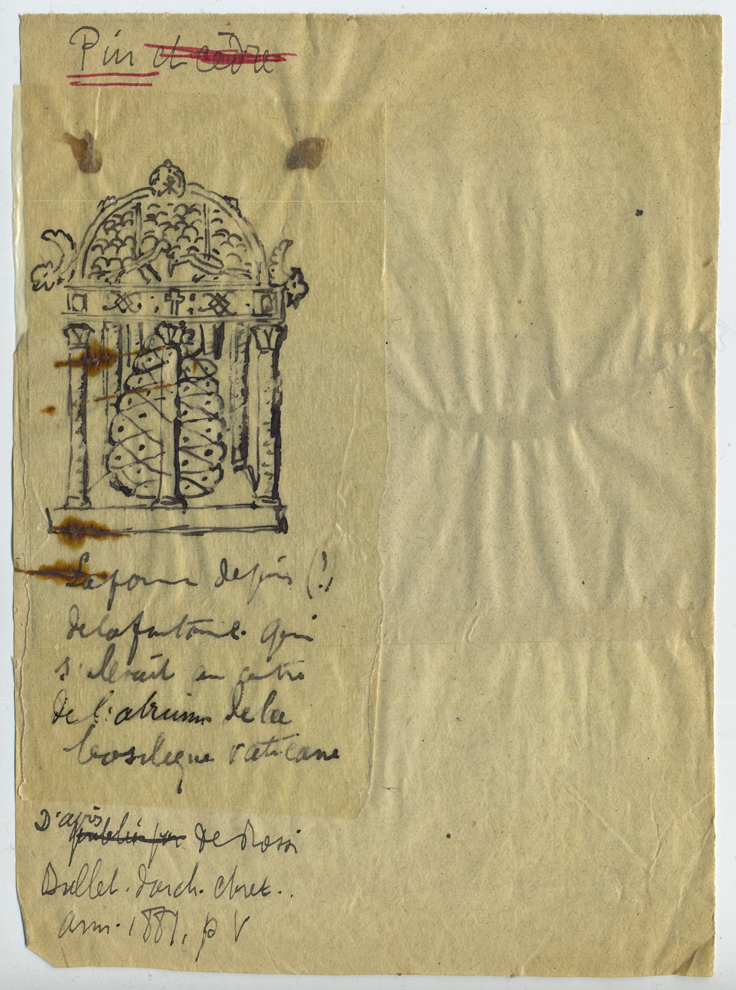 Pin et cèdre
La pomme de pin (!)
de la fontaine qui
s'élevait au centre
de l'atrium de la
basilique vaticane
D'après
publié par De Rossi
Bullet. d'arch. chret.
ann. 1881, p V